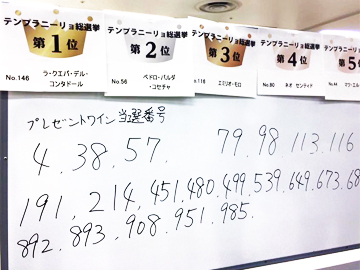 テンプラニーリョ総選挙
第1位
No.146
ラ・クエバ・デル・
コンタドール
テンプラニーリョ総選挙
第2位
No.56
ペドロ・バルダ
・コセチャ
テンプラニーリョ総選挙
第3位
エミリオ・モロ
テンプラニーリョ総選挙
第4位
No.80
ネオ センティド
テンプラニーリョ
第5
プレゼントワイン当選番号
4.38.57. 79.98.113.116
191,214,451.480.499.539.649.673.68
892.893.908.951.985.